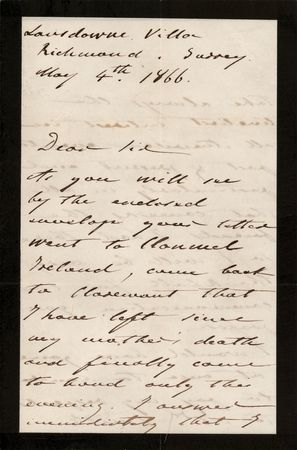 Lansdowne Villa
Richmond. Surrey
May 4th. 1866.
Dear Sir
As you will see
by the enclosed
envelope your letter
went to Clonmel
Ireland, came back
to Claremont that
I have left since
my mother's death
and finally came
to hand only this
evening. I answer
immediately that I